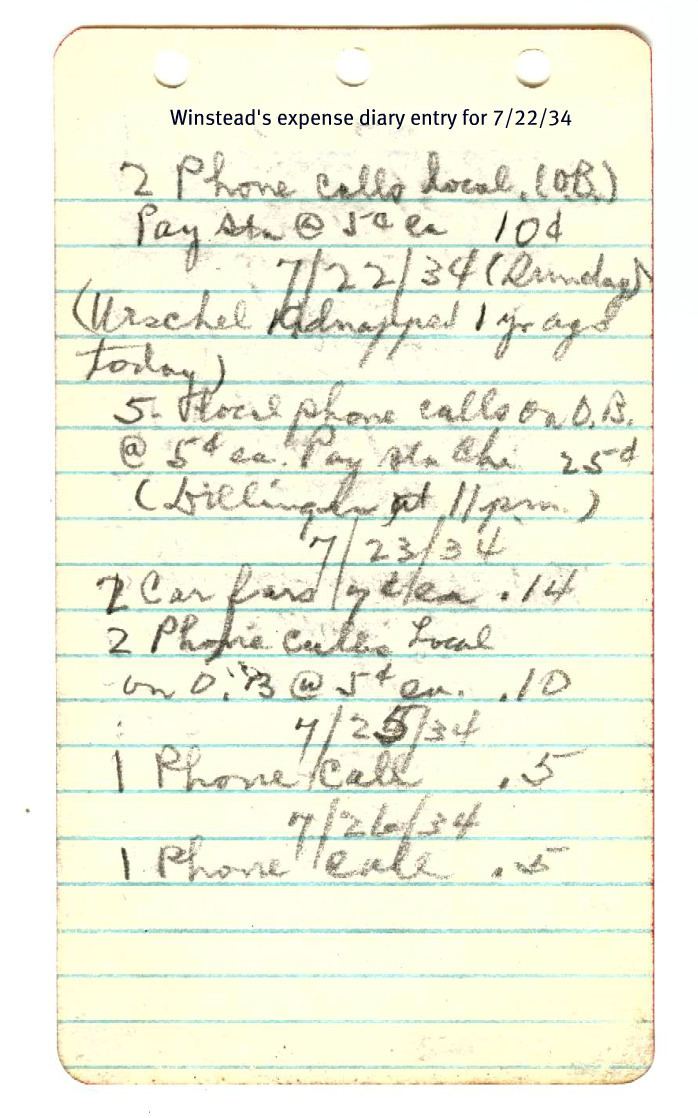 Winstead's expense diary entry for 7/22/34
2 Phone calls local. (O.B.)
Pay stn @ 5¢ ea 10¢
7/22/34 (Sunday)
(Urschel Kidnapped 1 yr ago
today)
5 local phone calls on O.B.
@ 5¢ ea. Pay stn Chi 25¢
(Dillinger at 11 pm.)
7/23/34
2 Car fars 7¢ ea .14
2 Phone calls Local
on O.B @ 5¢ ea. .10
7/25/34
1 Phone call .5
7/26/34
1 Phone call .5